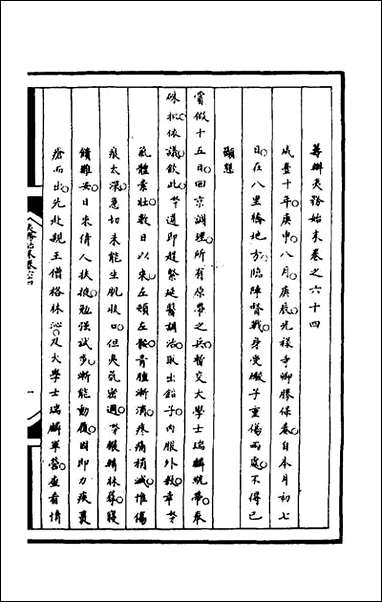 籌辦夷務始末卷之六十四
咸豐十年庚申八月庚辰光祿寺卿勝保奏自本月初七
日在八里橋地方臨陣督戰身受礮子重傷兩處不得已
籲懇
賞假十五日回京調理所有原帶之兵暫交大學士瑞麟統帶奉
硃批依議欽此奴才遵即趕緊延醫調治取出鉛子內服外敷幸奴才
氣體素壯數日以來左頰左骽骨腫漸消疼痛稍減惟傷
痕太深急切未能生肌收口但夷氛密邇奴才輾轉牀蓐寢
饋難安日來倩人扶掖勉強試步漸能動履因即力疾裹
瘡而出先赴親王僧格林沁及大學士瑞麟軍營查看情
夷務始末卷六四
一